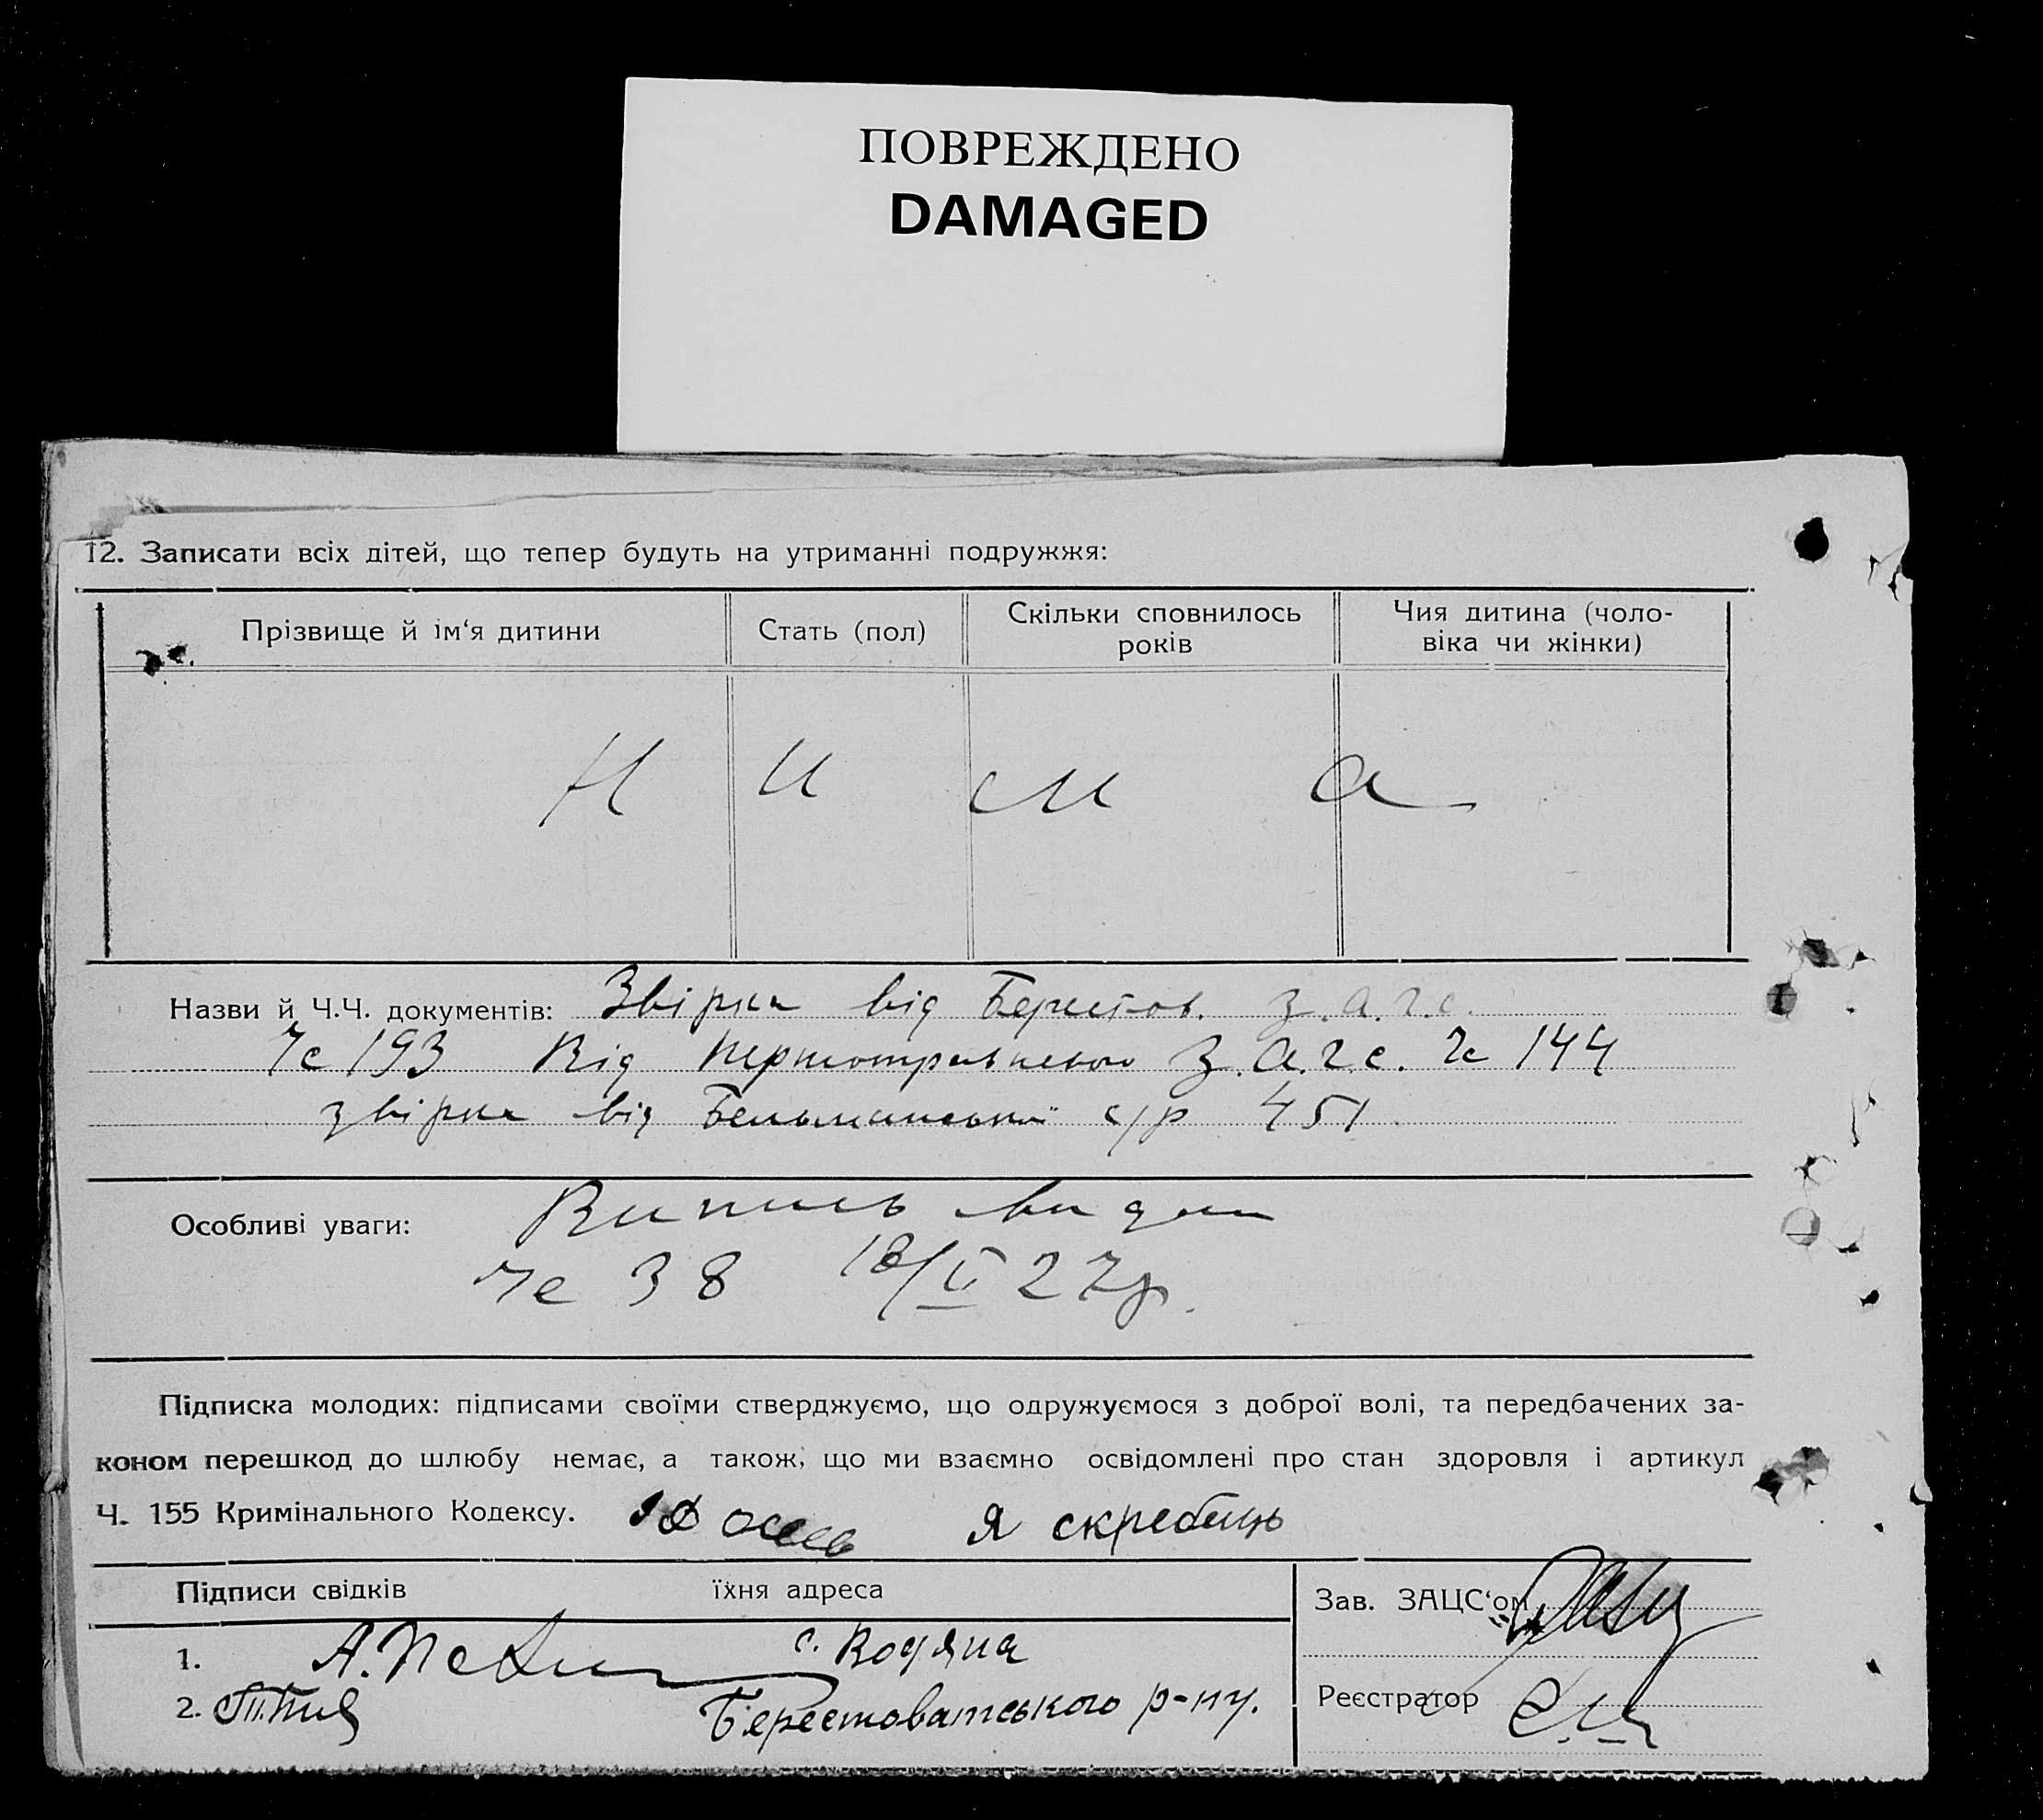 ПОВРЕЖДЕНО
DAMAGED
12. Записати всіх дітей, що тепер будуть на утриманні подружжя:
Прізвище й ім‘я дитини
Стать (пол)
Скільки сповнилось
років
Чия дитина (чоло-
віка чи жінки)
Н и м а
Назви й Ч.Ч. документів: Звірка від Берестов. З.А.Г.С.
Че 193 Від Першотравневого З.А.Г.С. Че 144
звірка від Бельманської с/р 451
Особливі уваги: Випись видана
Че 38 18/V 27р.
Підписка молодих: підписами своїми стверджуємо, що одружуємося з доброї волі, та передбачених за-
коном перешкод до шлюбу немає, а також, що ми взаємно освідомлені про стан здоровля і артикул
Ч. 155 Кримінального Кодексу. Я скребець
Підписи свідків їхня адреса
Зав. ЗАЦС‘ом
1. с. Водяна
2. Берестоватського р-ну.
Реєстратор